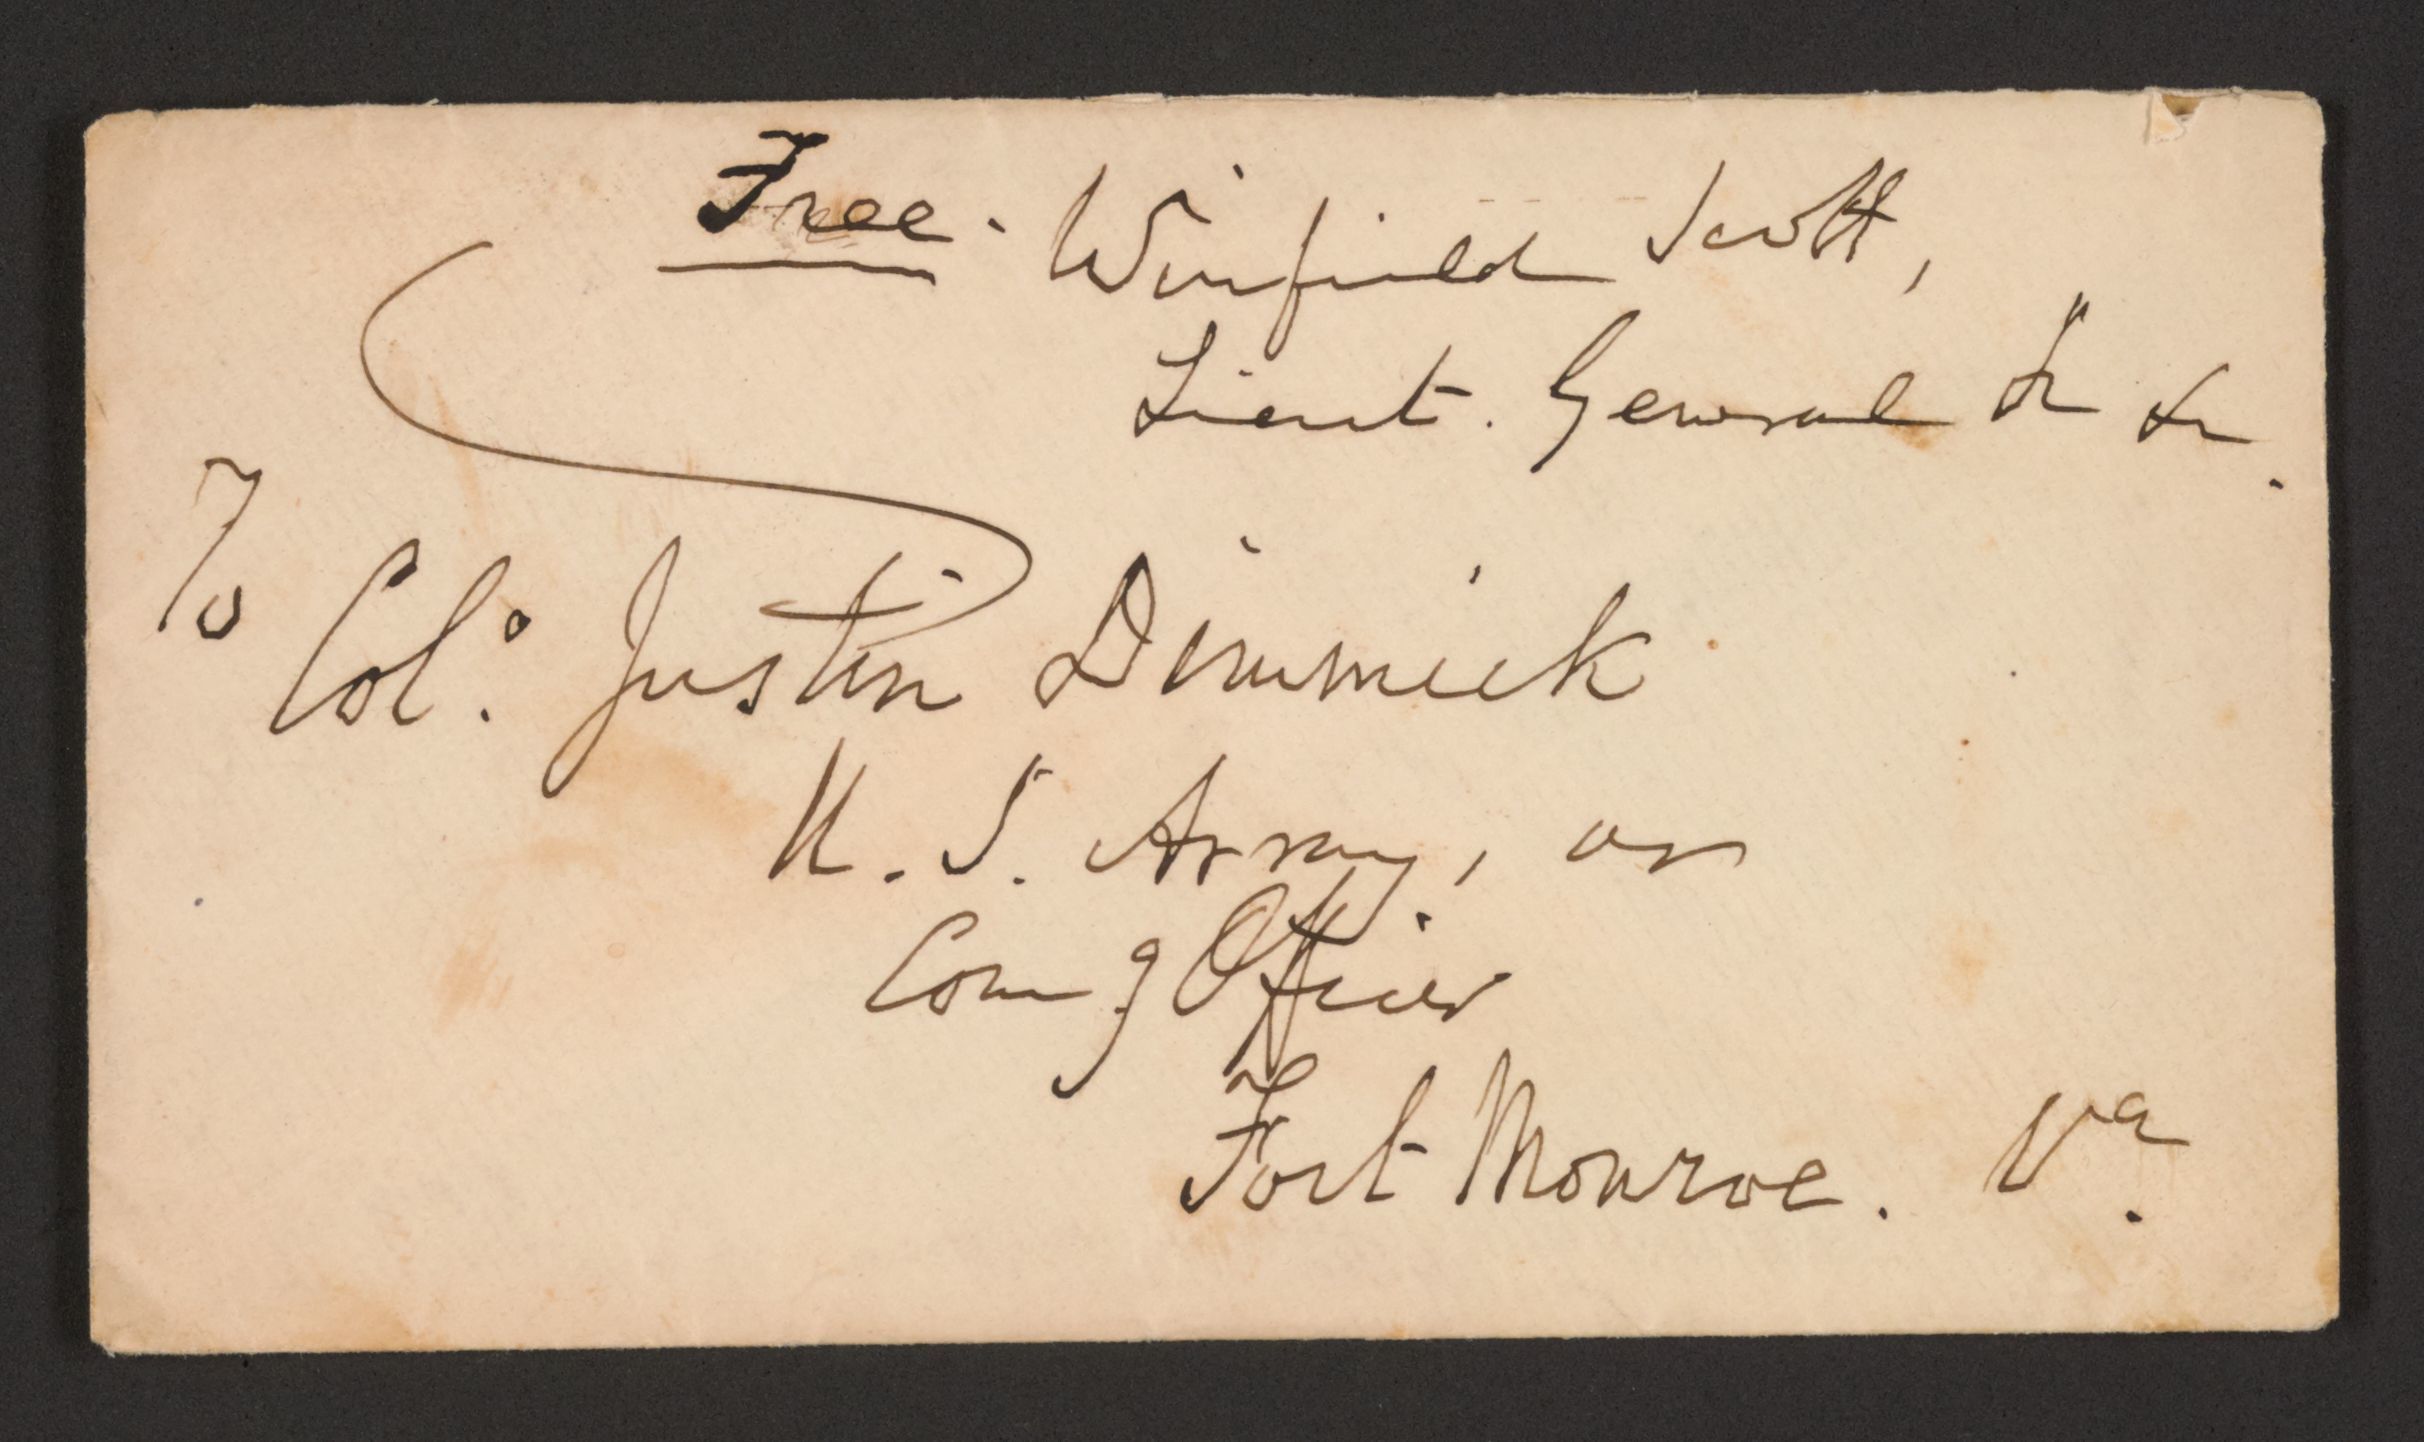 Free. Winfield Scott,
Lieut. General &c &c.
To Col: Justin Dimmick
U. S. Army, or
Comg Officer
Fort Monroe. Va.